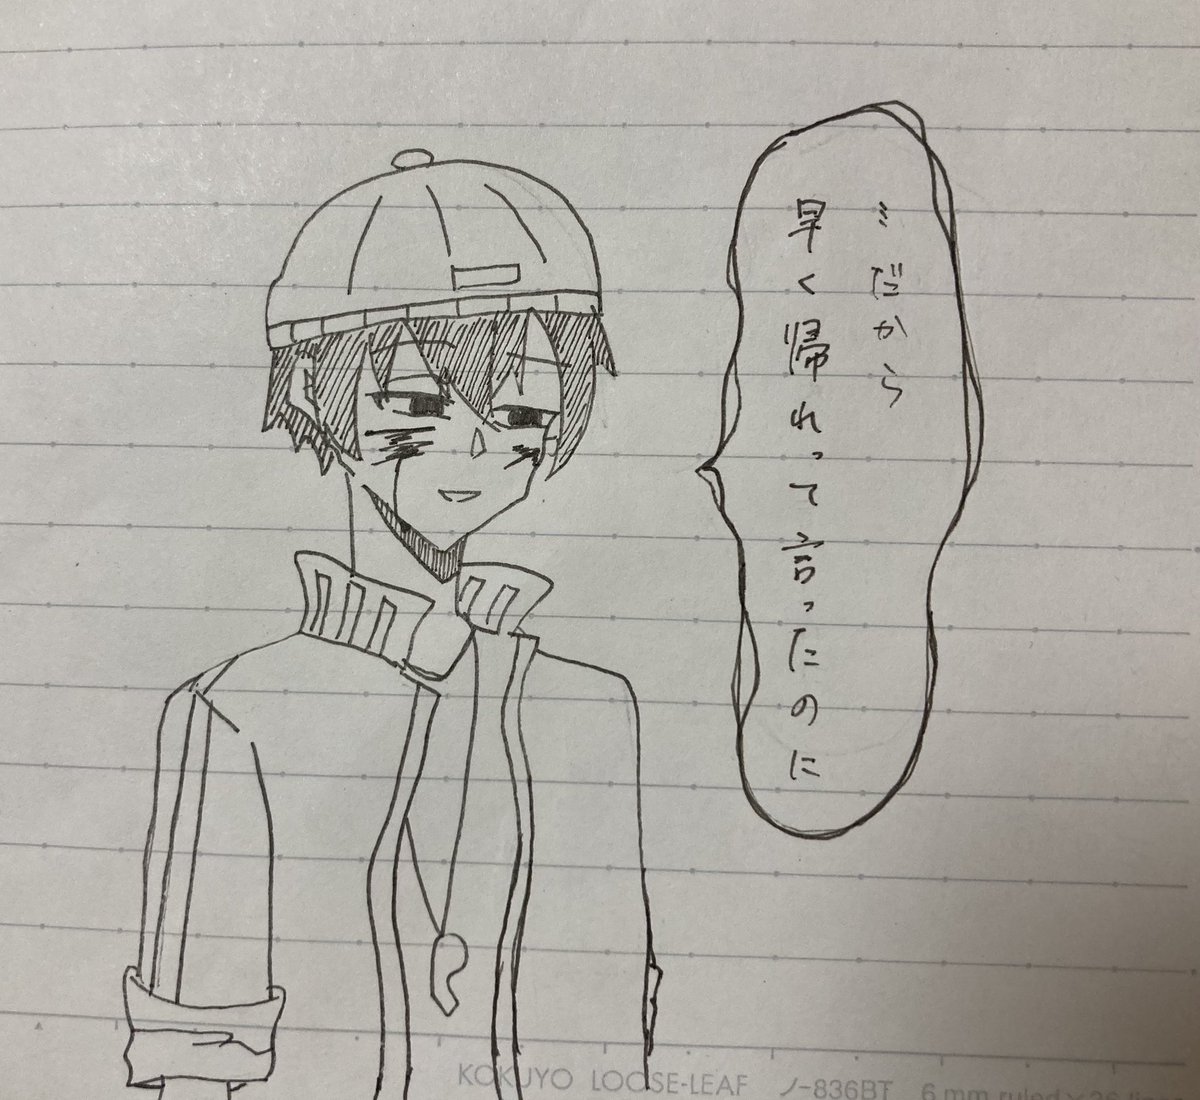 …だから
早く帰れって言ったのに
KOKUYO LOOSE-LEAF ノ-836BT 6 mm ruled×36 lines